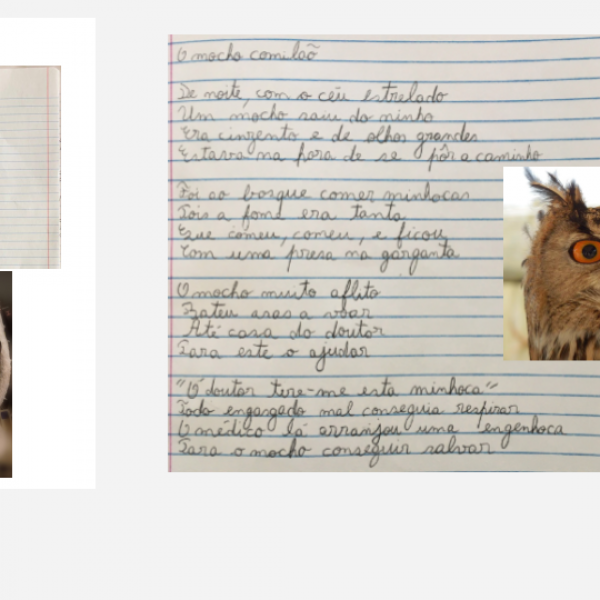 O mocho comilão
De noite, com o céu estrelado
Um mocho saiu do ninho
Era cinzento e de olhos grandes
Estava na hora de se pôr a caminho
Foi ao bosque comer minhocas
Pois a fome era tanta
Que comeu, comeu, e ficou
Com uma presa na garganta
O mocho muito aflito
Bateu asas a voar
Até casa do doutor
Para este o ajudar
"Ó doutor tire-me esta minhoca"
Todo engasgado mal conseguia respirar
O médico lá arranjou uma engenhoca
Para o mocho conseguir salvar